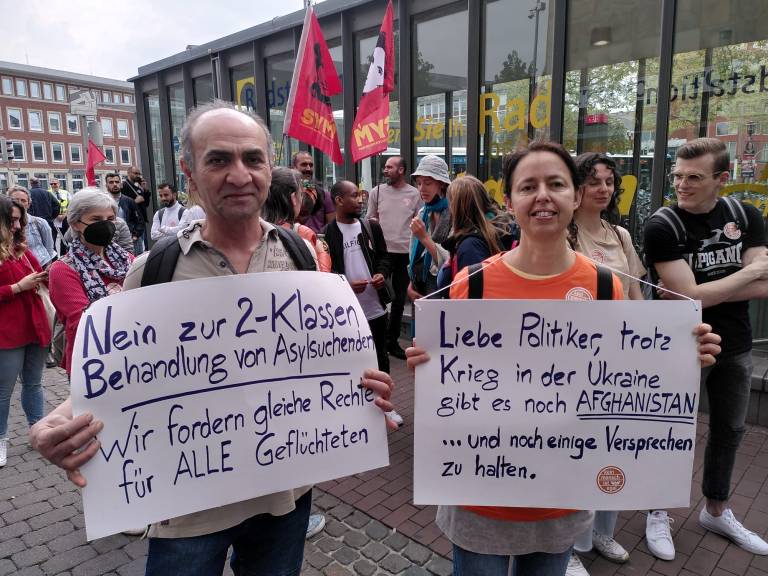 Nein zur 2-Klassen
Behandlung von Asylsuchenden
Wir fordern gleiche Rechte
für ALLE Geflüchteten
Liebe Politiker, trotz
Krieg in der Ukraine
gibt es noch AFGHANISTAN
... und noch einige Versprechen
zu halten.
kein
mensch
ist
egal
Rad
SYM